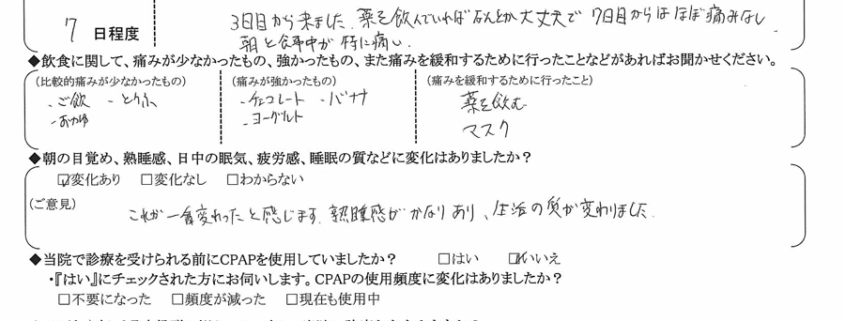 7 日程度
3日目から来ました。薬を飲んでいればなんとか大丈夫で 7日目からはほぼ痛みなし
朝と食事中が特に痛い。
◆飲食に関して、痛みが少なかったもの、強かったもの、また痛みを緩和するために行ったことなどがあればお聞かせください。
(比較的痛みが少なかったもの) (痛みが強かったもの) (痛みを緩和するために行ったこと)
・ご飯 ・とうふ ・チョコレート ・バナナ 薬を飲む
・おかゆ ・ヨーグルト マスク
◆朝の目覚め、熟睡感、日中の眠気、疲労感、睡眠の質などに変化はありましたか?
☑変化あり □変化なし □わからない
(ご意見)
これが一番変わったと感じます。熟睡感がかなりあり、生活の質が変わりました。
◆当院で診療を受けられる前にCPAPを使用していましたか? □はい ☑いいえ
・『はい』にチェックされた方にお伺いします。CPAPの使用頻度に変化はありましたか?
□不要になった □頻度が減った □現在も使用中